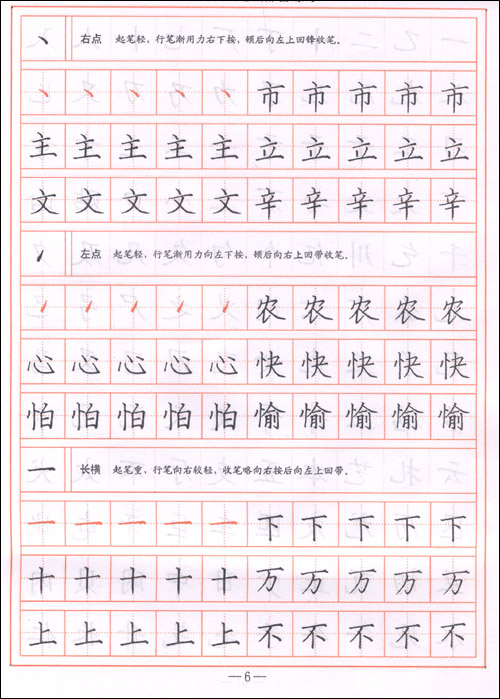 丶 右点 起笔轻，行笔渐用力右下按，顿后向左上回锋收笔。
丶 丶 丶 丶 丶 市 市 市 市 市
主 主 主 主 主 立 立 立 立 立
文 文 文 文 文 辛 辛 辛 辛 辛
左点 起笔轻，行笔渐用力向左下按，顿后向右上回带收笔。
农 农 农 农 农
心 心 心 心 心 快 快 快 快 快
怕 怕 怕 怕 怕 愉 愉 愉 愉 愉
一 长横 起笔重，行笔向右较轻，收笔略向右按后向左上回带。
一 一 一 一 一 下 下 下 下 下
十 十 十 十 十 万 万 万 万 万
上 上 上 上 上 不 不 不 不 不
—6—